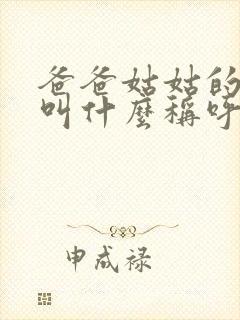 爸爸姑姑的
叫什麼稱呼
申成禄